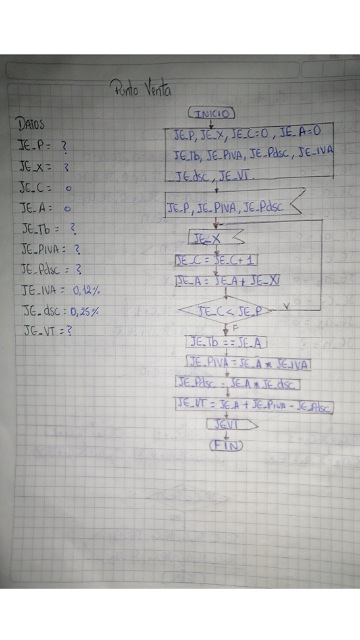 Punto Venta
DATOS
JE_P = ?
JE_X = ?
JE_C = 0
JE_A = 0
JE_Tb = ?
JE_PIVA = ?
JE_Pdsc = ?
JE_IVA = 0,12%
JE_dsc = 0,25%
JE_VT = ?
INICIO
JE_P, JE_X, JE_C=0, JE_A=0
JE_Tb, JE_PIVA, JE_Pdsc, JE_IVA
JE_dsc, JE_VT.
JE_P, JE_PIVA, JE_Pdsc
JE_X
JE_C = JE_C + 1
JE_A = JE_A + JE_X
JE_C < JE_P
V
F
JE_Tb == JE_A
JE_PIVA = JE_A * JE_IVA
JE_Pdsc = JE_A * JE_dsc
JE_VT = JE_A + JE_PIVA - JE_Pdsc
JE_VT
FIN